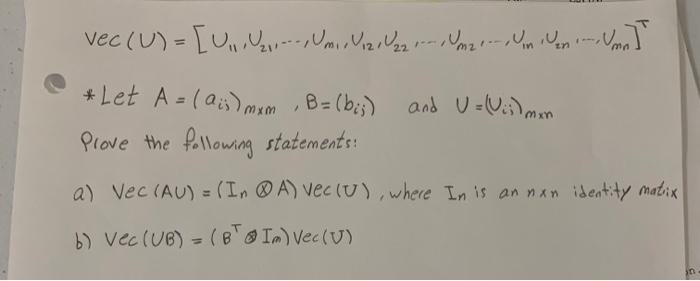 Vec(U) = [U₁₁, U₂₁, ..., Uₘ₁, U₁₂, U₂₂, ..., Uₘ₂, ..., U₁ₙ, U₂ₙ, ..., Uₘₙ]ᵀ
* Let A = (aᵢⱼ)ₘₓₘ , B = (bᵢⱼ) and U = (Uᵢⱼ)ₘₓₙ
Prove the following statements:
a) Vec(AU) = (Iₙ ⊗ A) Vec(U), where Iₙ is an nxn identity matix
b) Vec(UB) = (Bᵀ ⊗ Iₘ) Vec(U)